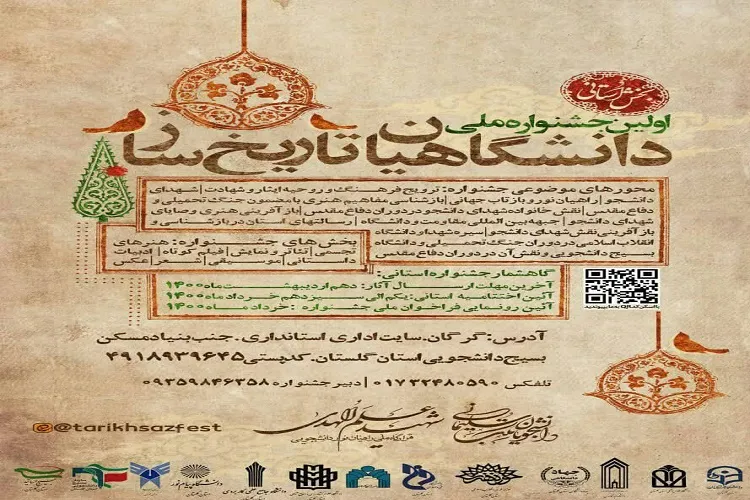 بخش استانی
اولین جشنواره ملی
دانشگاهیان تاریخ ساز
محورهای موضوعی جشنواره: ترویج فرهنگ و روحیه ایثار و شهادت | شهدای
دانشجو | راهیان نور و بازتاب جهانی | بازشناسی مفاهیم هنری با مضمون جنگ تحمیلی و
دفاع مقدس | نقش خانواده شهدای دانشجو در دوران دفاع مقدس | باز آفرینی هنری وصایای
شهدای دانشجو | جبهه بین المللی مقاومت و دانشگاه | رسالتهای استان در بازشناسی و
بازآفرینی نقش شهدای دانشجو | سیره شهدا و دانشگاه
انقلاب اسلامی در دوران جنگ تحمیلی و دانشگاه
بسیج دانشجویی و نقش آن در دوران دفاع مقدس
بخش های جشنواره: هنرهای
تجسمی | تئاتر و نمایش | فیلم کوتاه | ادبیات
داستانی | موسیقی | شعر | عکس
گاهشمار جشنواره استانی:
آخرین مهلت ارسال آثار: دهم اردیبهشت ماه ۱۴۰۰
آئین اختتامیه استانی: یکم الی سیزدهم خرداد ماه ۱۴۰۰
آئین رونمایی فراخوان ملی جشنواره: خرداد ماه ۱۴۰۰
آدرس: گرگان. سایت اداری استانداری. جنب بنیاد مسکن
بسیج دانشجویی استان گلستان. کدپستی ۴۹۱۸۹۳۹۶۴۵
تلفکس ۰۱۷۳۲۴۸۰۵۹۰ | دبیر جشنواره ۰۹۳۵۹۸۴۶۳۵۸
@tarikhsazfest
شهید علم الهدی
قرارگاه ملی راهیان نور دانشجویی
دانشگاه پیام نور
دانشگاه جامع علمی کاربردی
جهاد دانشگاهی